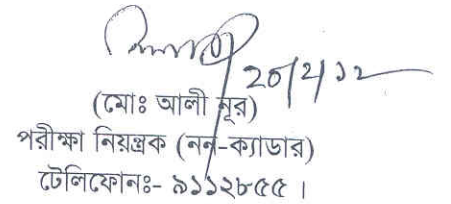 ২০/২/১২
(মোঃ আলী নূর)
পরীক্ষা নিয়ন্ত্রক (নন-ক্যাডার)
টেলিফোনঃ- ৯১১২৮৫৫ ।